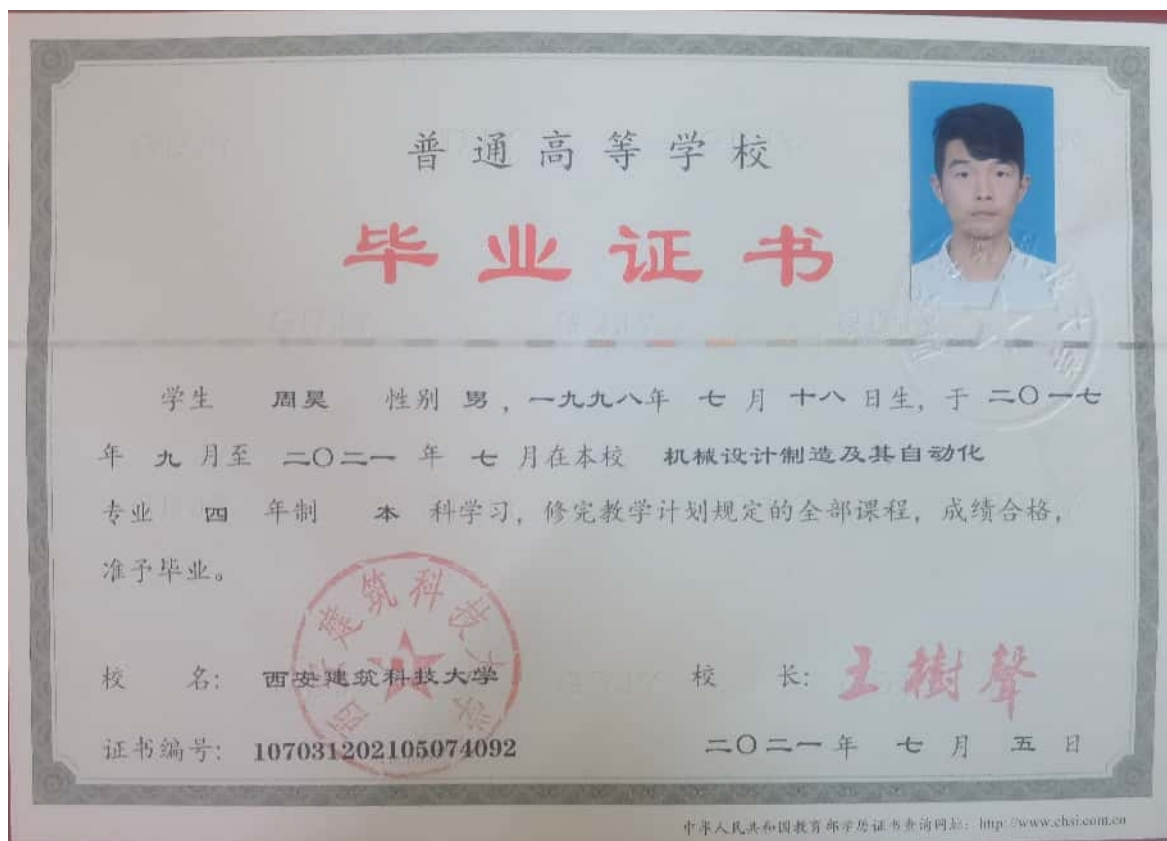 普通高等学校
毕业证书
学生 周昊 性别 男，一九九八年 七 月 十八 日生，于 二〇一七
年 九 月至 二〇二一 年 七 月在本校 机械设计制造及其自动化
专业 四 年制 本 科学习，修完教学计划规定的全部课程，成绩合格，
准予毕业。
西安建筑科技大学
校 名： 西安建筑科技大学 校 长： 王樹聲
证书编号： 107031202105074092 二〇二一 年 七 月 五 日
中华人民共和国教育部学历证书查询网址：http://www.chsi.com.cn